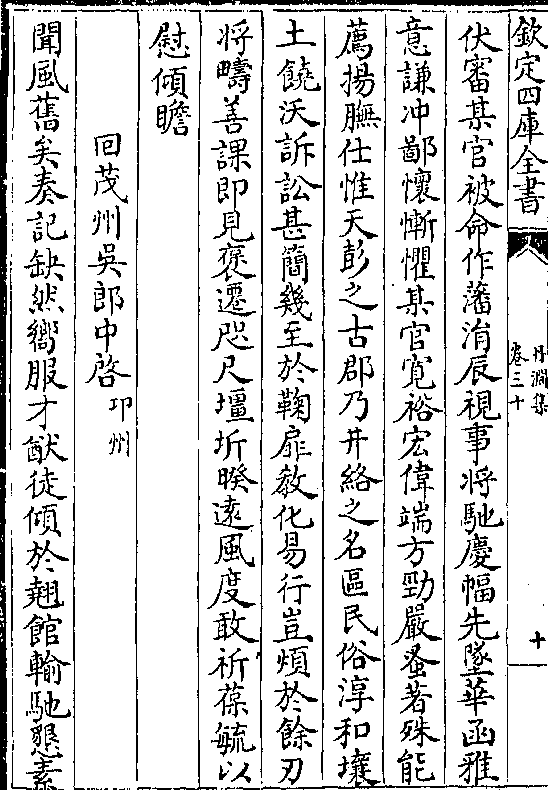 欽定四庫全書
丹淵集
卷三十
十
伏審某官被命作藩消辰視事将馳慶幅先墜華函雅
意謙冲鄙懷慚懼某官寛裕宏偉端方勁嚴蚤著殊能
薦揚膴仕惟天彭之古郡乃井絡之名區民俗淳和壤
土饒沃訴訟甚簡幾至於鞠扉敎化易行豈煩於餘刃
将疇善課即見褒遷咫尺壃圻暌逺風度敢祈葆毓以
慰傾瞻
回茂州吳郎中啓 卭州
聞風舊矣奏記缺然嚮服才猷徒傾於翹館輸馳懇素